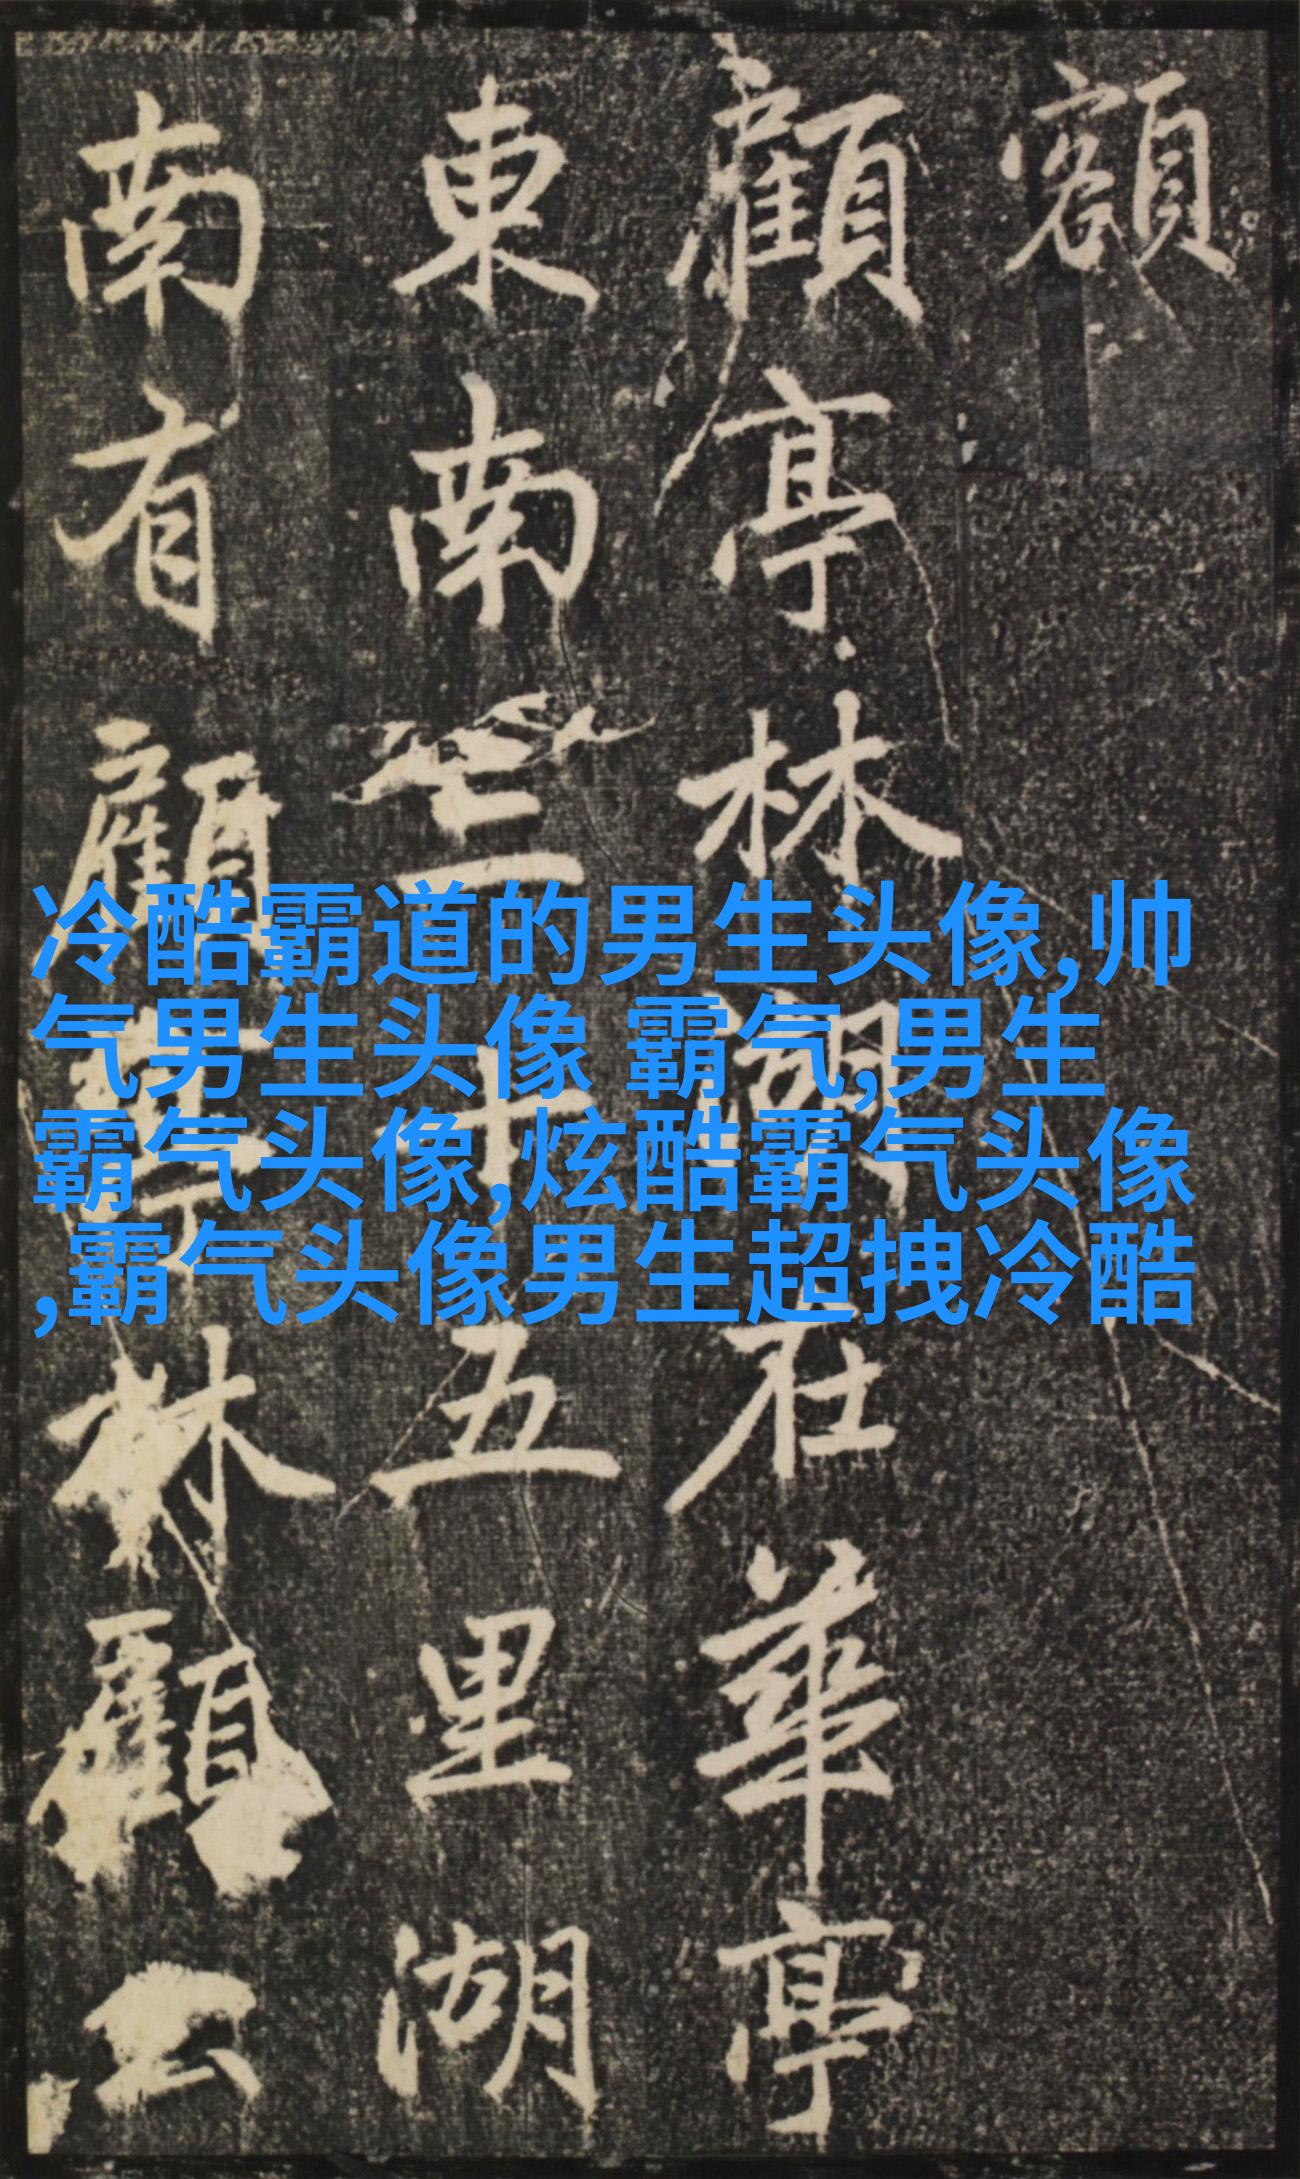 額
顧亭林湖在華亭
東南三十五里湖
南有顧亭林顧公
冷酷霸道的男生头像,帅
气男生头像 霸气,男生
霸气头像,炫酷霸气头像
,霸气头像男生超拽冷酷